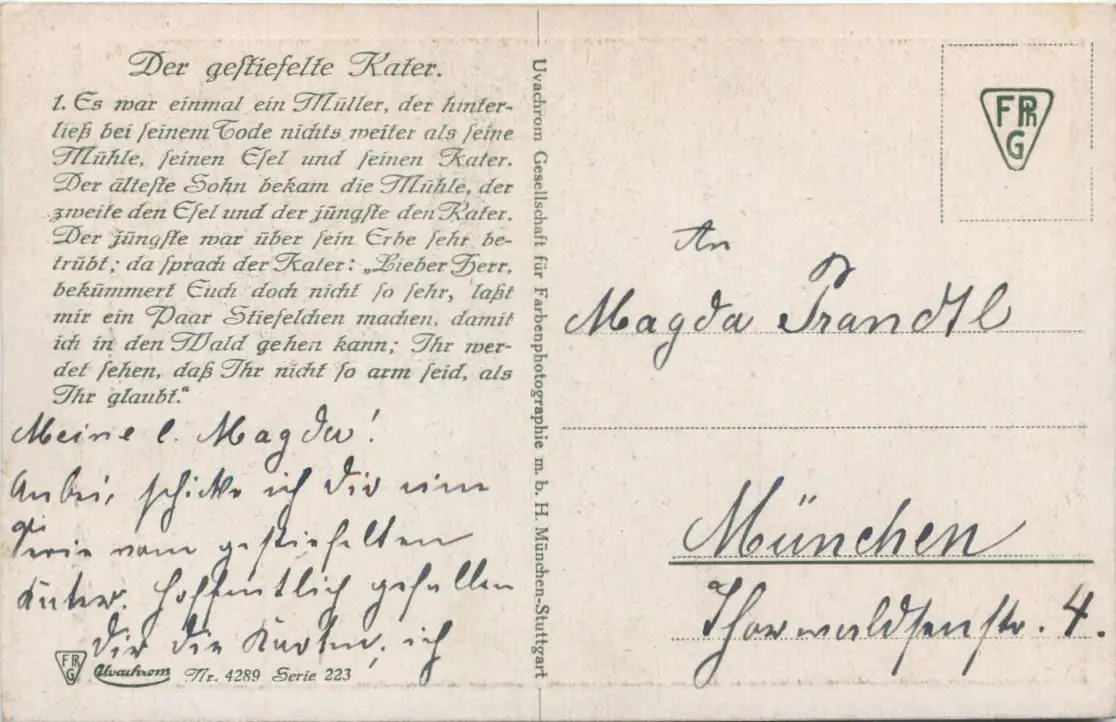 Der gestiefelte Kater.
1. Es war einmal ein Müller, der hinter-
ließ bei seinem Tode nichts weiter als seine
Mühle, seinen Esel und seinen Kater.
Der älteste Sohn bekam die Mühle, der
zweite den Esel und der jüngste den Kater.
Der jüngste war über sein Erbe sehr be-
trübt; da sprach der Kater: „Lieber Herr,
bekümmert Euch doch nicht so sehr, laßt
mir ein Paar Stiefelchen machen, damit
ich in den Wald gehen kann; Ihr wer-
det sehen, daß Ihr nicht so arm seid, als
Ihr glaubt."
Meine l. Magda!
Anbei, schicke ich dir eine
Serie vom gestiefelten
Kater. Hoffentlich gefallen
dir die Karten, ich
FPhG Uvachrom Nr. 4289 Serie 223
Uvachrom Gesellschaft für Farbenphotographie m. b. H. München-Stuttgart
FPhG
An
Magda Prandtl
München
Thorwaldsenstr. 4.